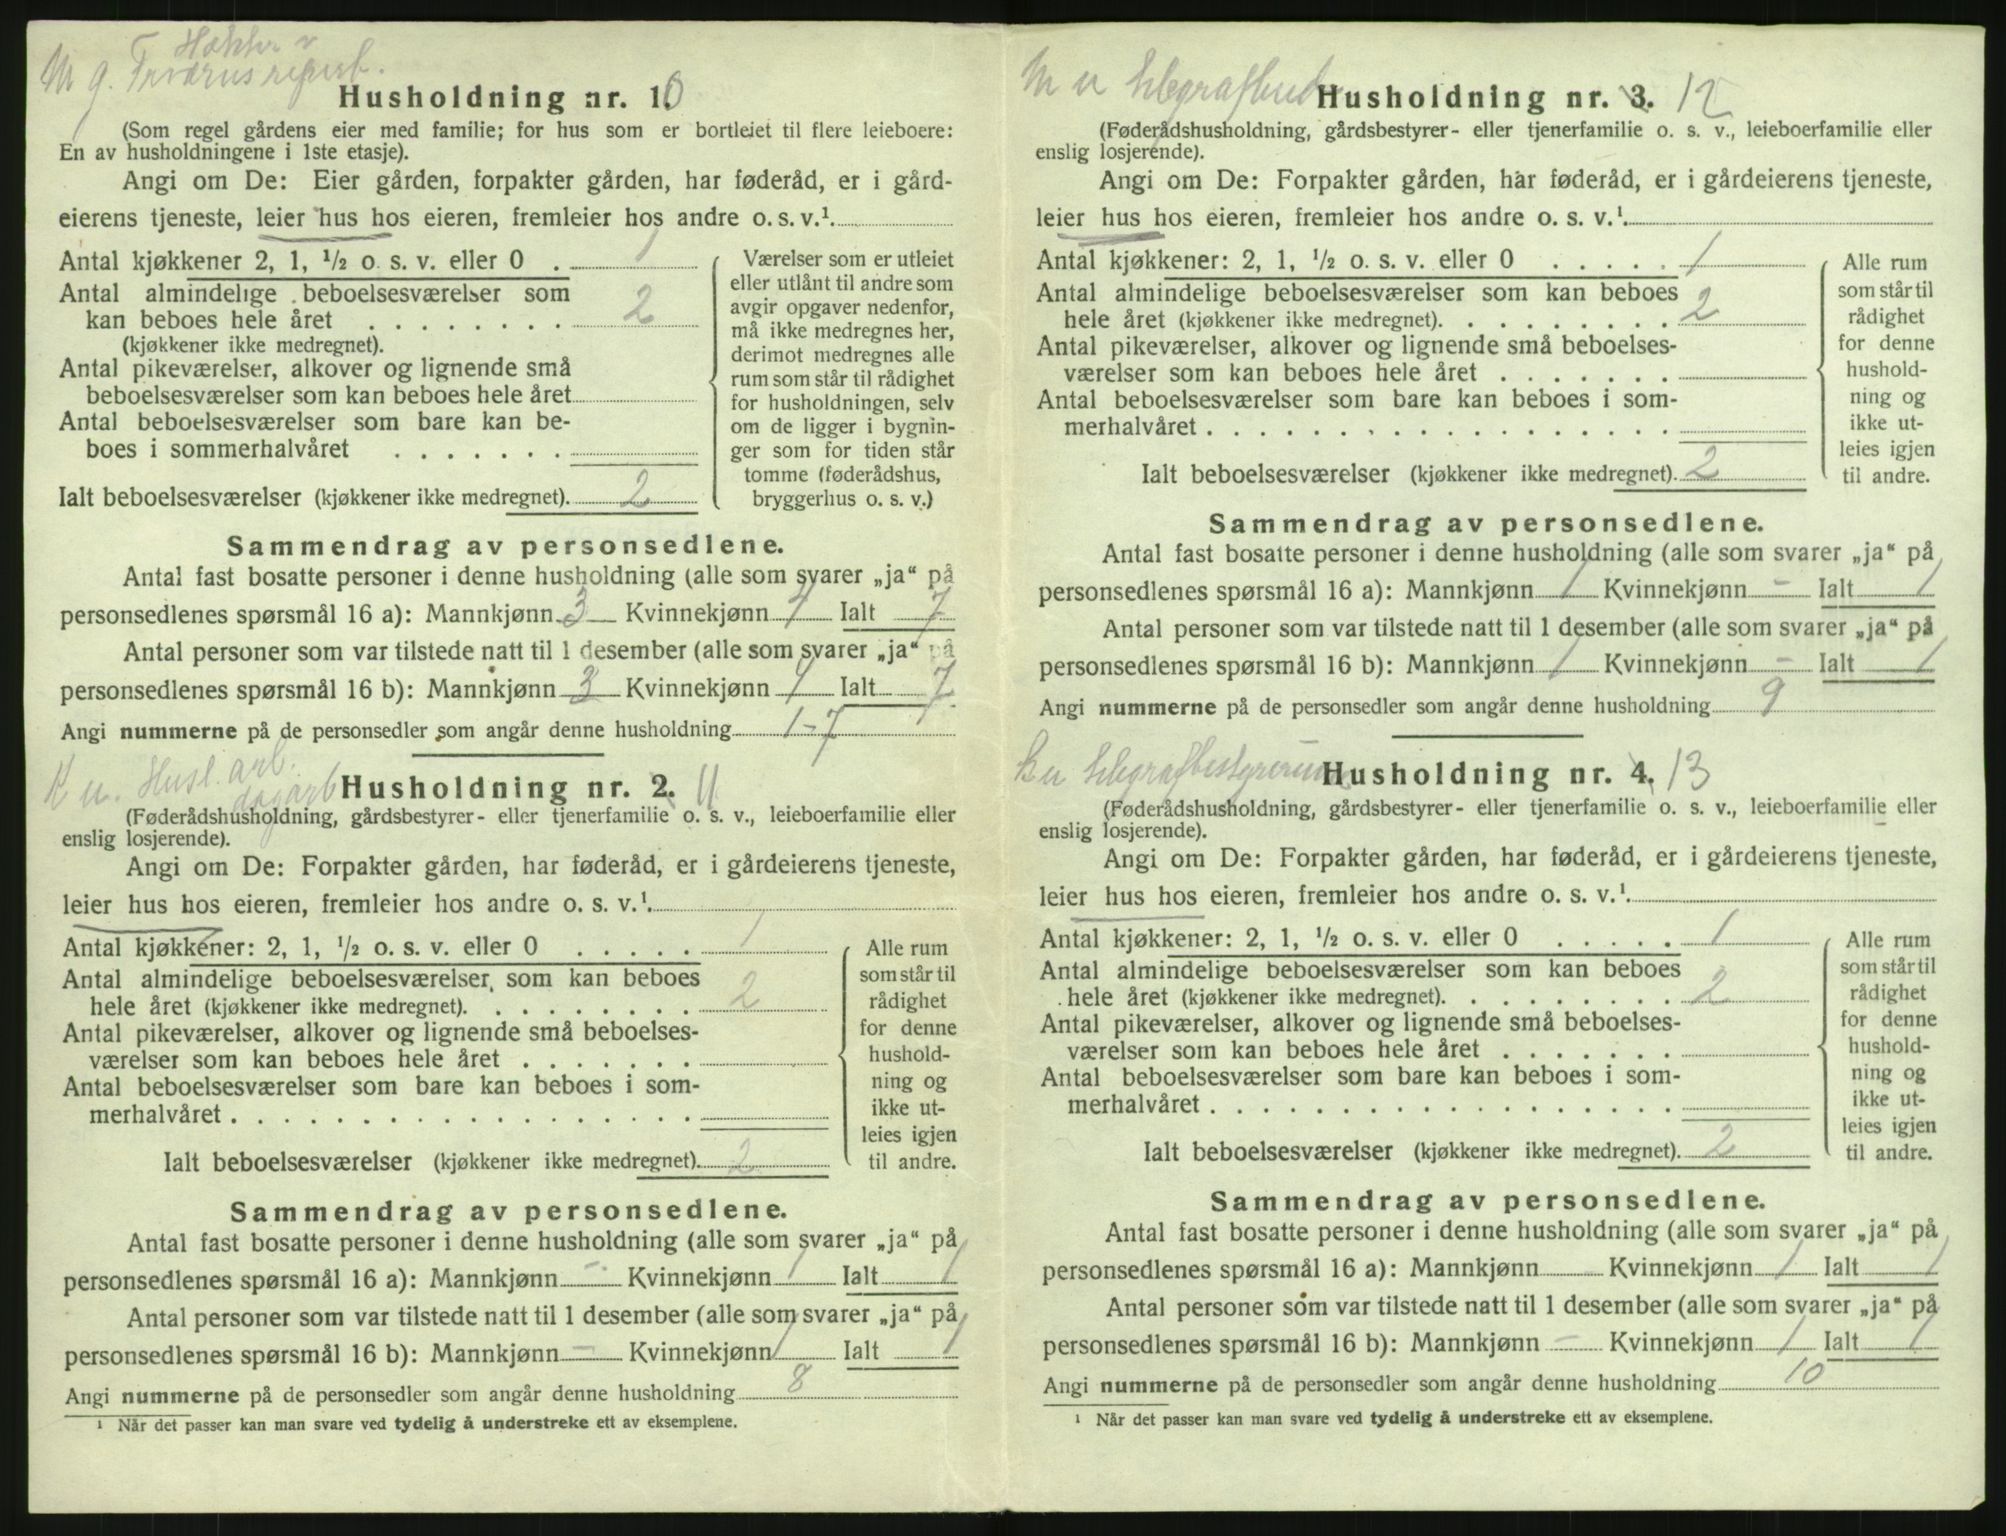 M g.
Husholdning nr. 10
(Som regel gårdens eier med familie; for hus som er bortleiet til flere leieboere:
En av husholdningene i 1ste etasje).
Angi om De: Eier gården, forpakter gården, har føderåd, er i gård-
eierens tjeneste, leier hus hos eieren, fremleier hos andre o. s. v.¹
Antal kjøkkener 2, 1, ½ o. s. v. eller 0 . 1
Antal almindelige beboelsesværelser som
kan beboes hele året . . . . . . . . 2
(kjøkkener ikke medregnet).
Antal pikeværelser, alkover og lignende små
beboelsesværelser som kan beboes hele året
Antal beboelsesværelser som bare kan be-
boes i sommerhalvåret . . . . . . .
Ialt beboelsesværelser (kjøkkener ikke medregnet). 2
Værelser som er utleiet
eller utlånt til andre som
avgir opgaver nedenfor,
må ikke medregnes her,
derimot medregnes alle
rum som står til rådighet
for husholdningen, selv
om de ligger i bygnin-
ger som for tiden står
tomme (føderådshus,
bryggerhus o. s. v.)
Sammendrag av personsedlene.
Antal fast bosatte personer i denne husholdning (alle som svarer „ja“ på
personsedlenes spørsmål 16 a): Mannkjønn 3 Kvinnekjønn 4 Ialt 7
Antal personer som var tilstede natt til 1 desember (alle som svarer „ja“ på
personsedlenes spørsmål 16 b): Mannkjønn 3 Kvinnekjønn 4 Ialt 7
Angi nummerne på de personsedler som angår denne husholdning 1-7
K u. Husl. arb.
dagarb
Husholdning nr. 2. 11
(Føderådshusholdning, gårdsbestyrer- eller tjenerfamilie o. s. v., leieboerfamilie eller
enslig losjerende).
Angi om De: Forpakter gården, har føderåd, er i gårdeierens tjeneste,
leier hus hos eieren, fremleier hos andre o. s. v.¹
Antal kjøkkener: 2, 1, ½ o. s. v. eller 0 . . . . . 1
Antal almindelige beboelsesværelser, som kan beboes
hele året (kjøkkener ikke medregnet). . . . . . . . . 2
Antal pikeværelser, alkover og lignende små beboelses-
værelser som kan beboes hele året . . . . . . .
Antal beboelsesværelser som bare kan beboes i som-
merhalvåret . . . . . . . . . . . . . . . . . .
Ialt beboelsesværelser (kjøkkener ikke medregnet). 2
Alle rum
som står til
rådighet
for denne
hushold-
ning og
ikke ut-
leies igjen
til andre.
Sammendrag av personsedlene.
Antal fast bosatte personer i denne husholdning (alle som svarer „ja“ på
personsedlenes spørsmål 16 a): Mannkjønn - Kvinnekjønn 1 Ialt 1
Antal personer som var tilstede natt til 1 desember (alle som svarer „ja“ på
personsedlenes spørsmål 16 b): Mannkjønn - Kvinnekjønn 1 Ialt 1
Angi nummerne på de personsedler som angår denne husholdning 8
¹ Når det passer kan man svare ved tydelig å understreke ett av eksemplene.
M u telegrafbud
Husholdning nr. 3. 12
(Føderådshusholdning, gårdsbestyrer- eller tjenerfamilie o. s. v., leieboerfamilie eller
enslig losjerende).
Angi om De: Forpakter gården, har føderåd, er i gårdeierens tjeneste,
leier hus hos eieren, fremleier hos andre o. s. v.¹
Antal kjøkkener: 2, 1, ½ o. s. v. eller 0 . . . . . 1
Antal almindelige beboelsesværelser som kan beboes
hele året (kjøkkener ikke medregnet). . . . . . . . . 2
Antal pikeværelser, alkover og lignende små beboelses-
værelser som kan beboes hele året . . . . . . .
Antal beboelsesværelser som bare kan beboes i som-
merhalvåret . . . . . . . . . . . . . . . . . .
Ialt beboelsesværelser (kjøkkener ikke medregnet). 2
Alle rum
som står til
rådighet
for denne
hushold-
ning og
ikke ut-
leies igjen
til andre.
Sammendrag av personsedlene.
Antal fast bosatte personer i denne husholdning (alle som svarer „ja“ på
personsedlenes spørsmål 16 a): Mannkjønn 1 Kvinnekjønn - Ialt 1
Antal personer som var tilstede natt til 1 desember (alle som svarer „ja“ på
personsedlenes spørsmål 16 b): Mannkjønn 1 Kvinnekjønn - Ialt 1
Angi nummerne på de personsedler som angår denne husholdning 9
u telegrafbestyrerinne
Husholdning nr. 4. 13
(Føderådshusholdning, gårdsbestyrer- eller tjenerfamilie o. s. v., leieboerfamilie eller
enslig losjerende).
Angi om De: Forpakter gården, har føderåd, er i gårdeierens tjeneste,
leier hus hos eieren, fremleier hos andre o. s. v.¹
Antal kjøkkener: 2, 1, ½ o. s. v. eller 0 . . . . . 1
Antal almindelige beboelsesværelser som kan beboes
hele året (kjøkkener ikke medregnet). . . . . . . . . 2
Antal pikeværelser, alkover og lignende små beboelses-
værelser som kan beboes hele året . . . . . . .
Antal beboelsesværelser som bare kan beboes i som-
merhalvåret . . . . . . . . . . . . . . . . . .
Ialt beboelsesværelser (kjøkkener ikke medregnet). 2
Alle rum
som står til
rådighet
for denne
hushold-
ning og
ikke ut-
leies igjen
til andre.
Sammendrag av personsedlene.
Antal fast bosatte personer i denne husholdning (alle som svarer „ja“ på
personsedlenes spørsmål 16 a): Mannkjønn Kvinnekjønn 1 Ialt 1
Antal personer som var tilstede natt til 1 desember (alle som svarer „ja“ på
personsedlenes spørsmål 16 b): Mannkjønn - Kvinnekjønn 1 Ialt 1
Angi nummerne på de personsedler som angår denne husholdning 10
¹ Når det passer kan man svare ved tydelig å understreke ett av eksemplene.